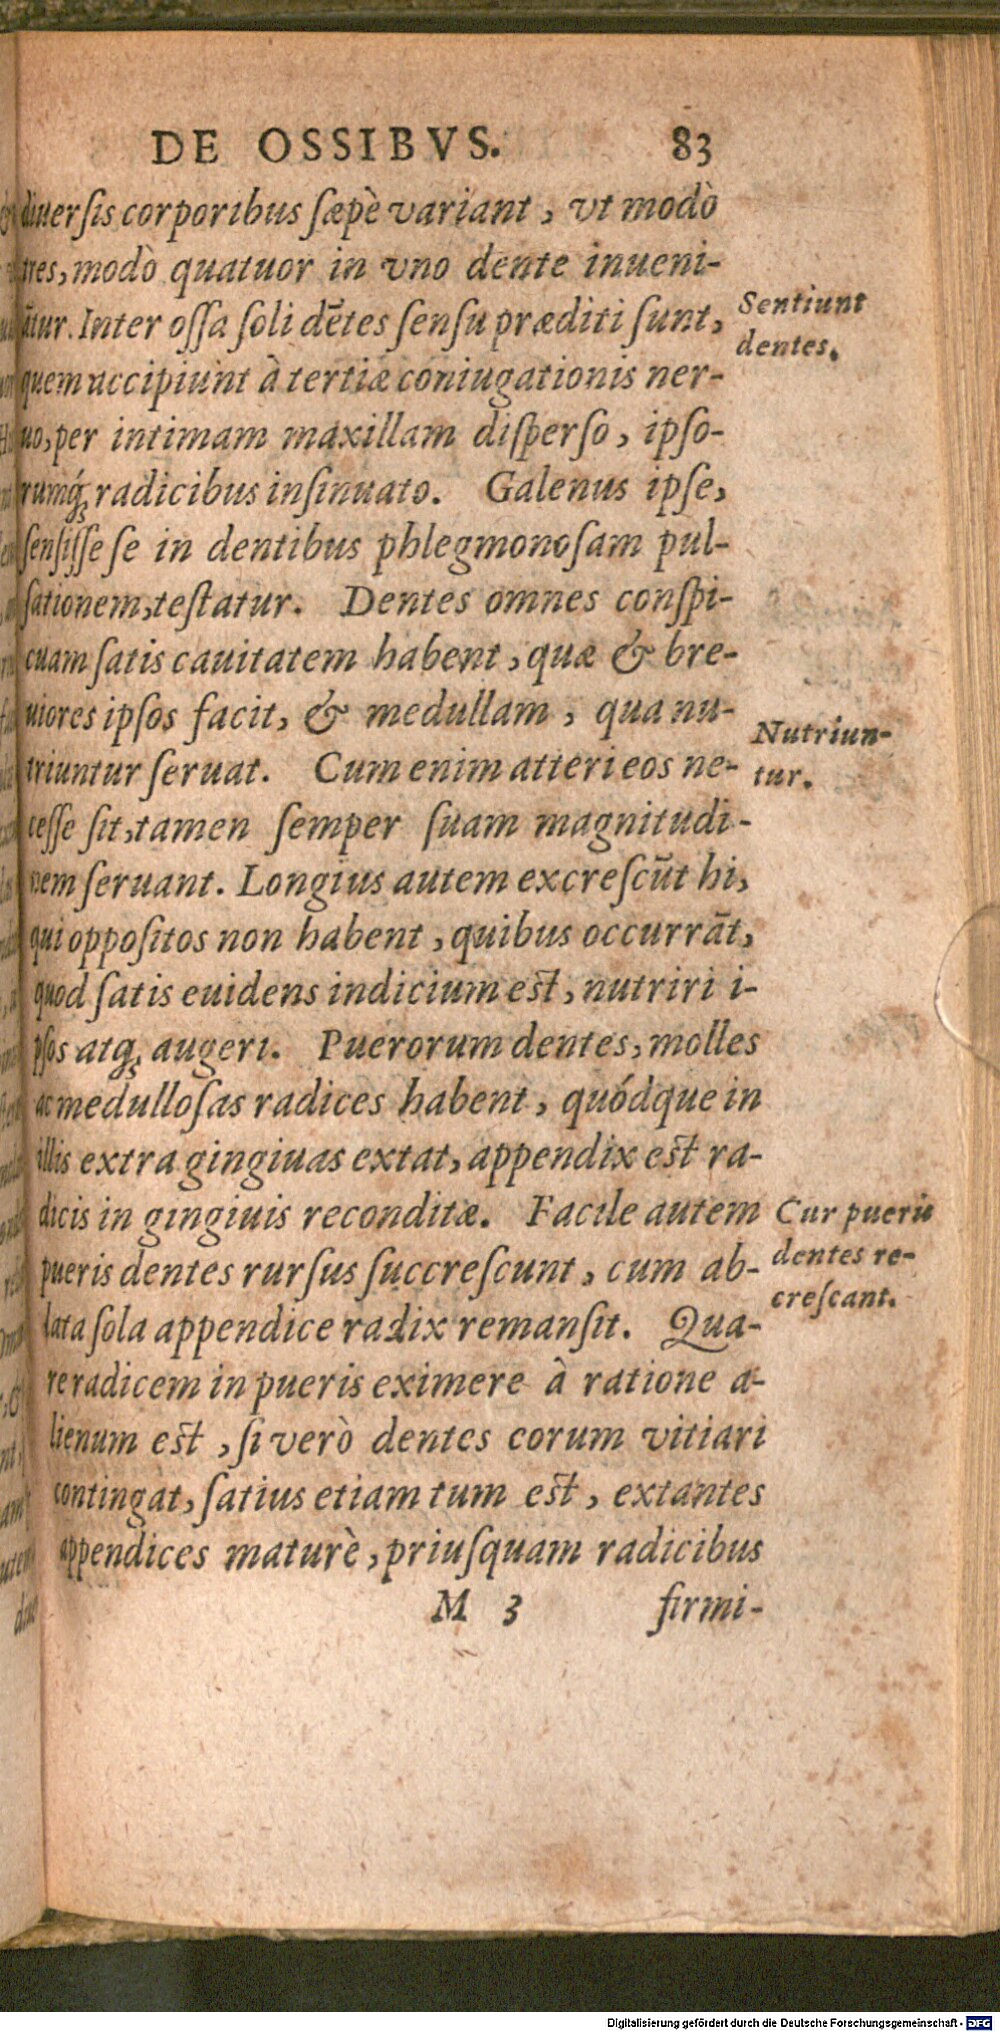 DE OSSIBVS. 83
diuerſis corporibus ſæpè variant, vt modò
tres, modò quatuor in vno dente inueni-
ũtur. Inter oſſa ſoli dẽtes ſenſu præditi ſunt,
Sentiunt
dentes.
quem accipiunt à tertiæ coniugationis ner-
uo, per intimam maxillam diſperſo, ipſo-
rumq́; radicibus inſinuato. Galenus ipſe,
ſenſiſſe ſe in dentibus phlegmonoſam pul-
ſationem, teſtatur. Dentes omnes conſpi-
cuam ſatis cauitatem habent, quæ & bre-
uiores ipſos facit, & medullam, qua nu-
Nutriun-
tur.
triuntur ſeruat. Cum enim atteri eos ne-
ceſſe ſit, tamen ſemper ſuam magnitudi-
nem ſeruant. Longius autem excreſcũt hi,
qui oppoſitos non habent, quibus occurrãt,
quod ſatis euidens indicium eſt, nutriri i-
pſos atq; augeri. Puerorum dentes, molles
ac medulloſas radices habent, quódque in
illis extra gingiuas extat, appendix eſt ra-
dicis in gingiuis reconditæ. Facile autem
Cur pueris
dentes re-
creſcant.
pueris dentes rurſus ſuccreſcunt, cum ab-
lata ſola appendice radix remanſit. Qua-
re radicem in pueris eximere à ratione a-
lienum eſt, ſi verò dentes eorum vitiari
contingat, ſatius etiam tum eſt, extantes
appendices maturè, priuſquam radicibus
M 3 firmi-
Digitalisierung gefördert durch die Deutsche Forschungsgemeinschaft - DFG